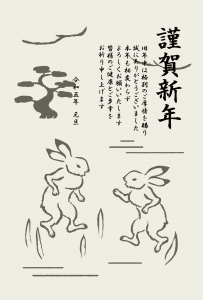 謹賀新年
旧年中は格別のご厚情を賜り
誠にありがとうございました
本年も相変わらず
よろしくお願いいたします
皆様のご健康とご多幸を
お祈り申し上げます
令和五年 元旦